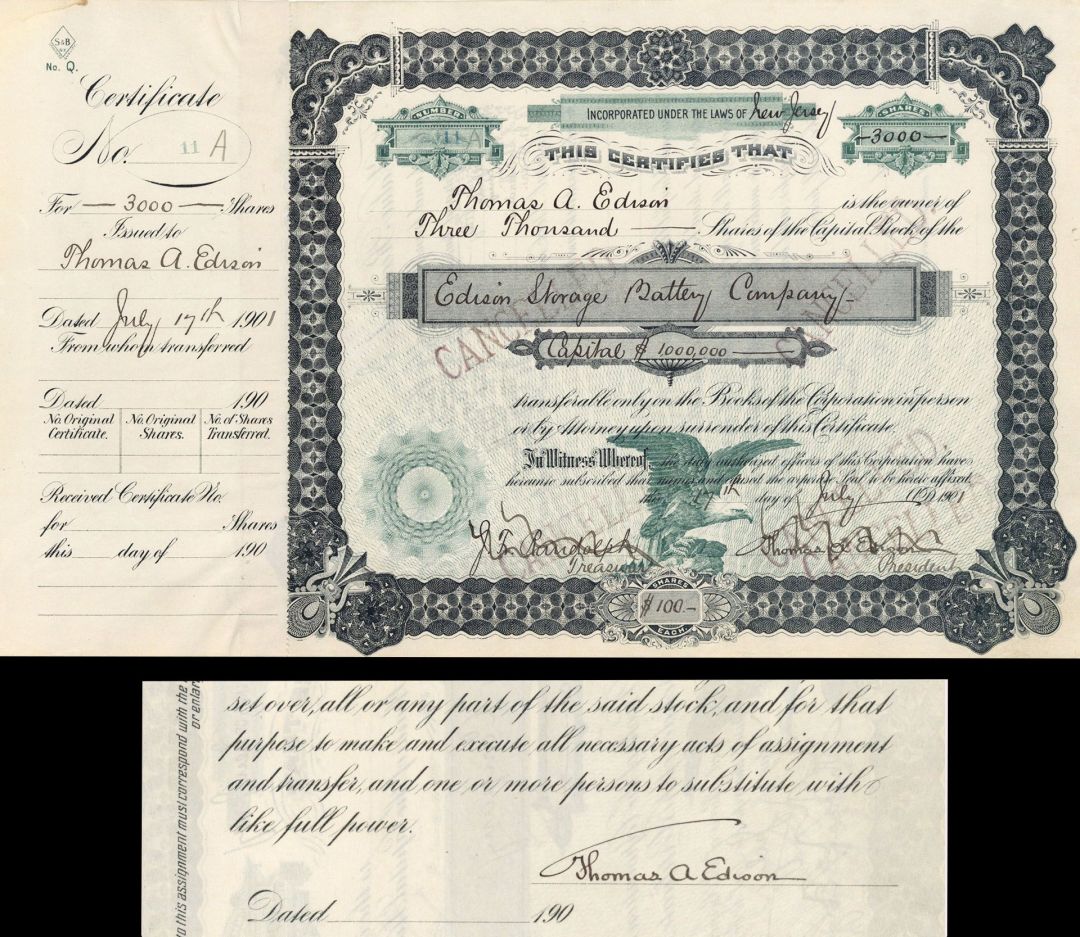 S&B
N.Y.
No. Q.
Certificate
No. 11 A
For — 3000 — Shares
Issued to
Thomas A. Edison
Dated July 17th 1901
From whom transferred
Dated 190
No. Original Certificate. No. Original Shares. No. of Shares Transferred.
Received Certificate No.
for Shares
this day of 190
NUMBER
11 A
INCORPORATED UNDER THE LAWS OF New Jersey
SHARES
—3000—
THIS CERTIFIES THAT
Thomas A. Edison is the owner of
Three Thousand — Shares of the Capital Stock of the
Edison Storage Battery Company
Capital $ 1,000,000 —
transferable only on the Books of the Corporation in person
or by Attorney upon surrender of this Certificate.
In Witness Whereof, the duly authorized officers of this Corporation have
hereunto subscribed their names and caused the corporate Seal to be hereto affixed
the 17th day of July A.D. 1901
J.F. Randolph Thomas A Edison
Treasurer President
SHARES
$100—
EACH
CANCELLED
CANCELLED.
CANCELLED
CANCELLED
set over, all or any part of the said stock, and for that
purpose to make and execute all necessary acts of assignment
and transfer, and one or more persons to substitute with
like full power.
Thomas A Edison
Dated 190
to this assignment must correspond with the
or enlar